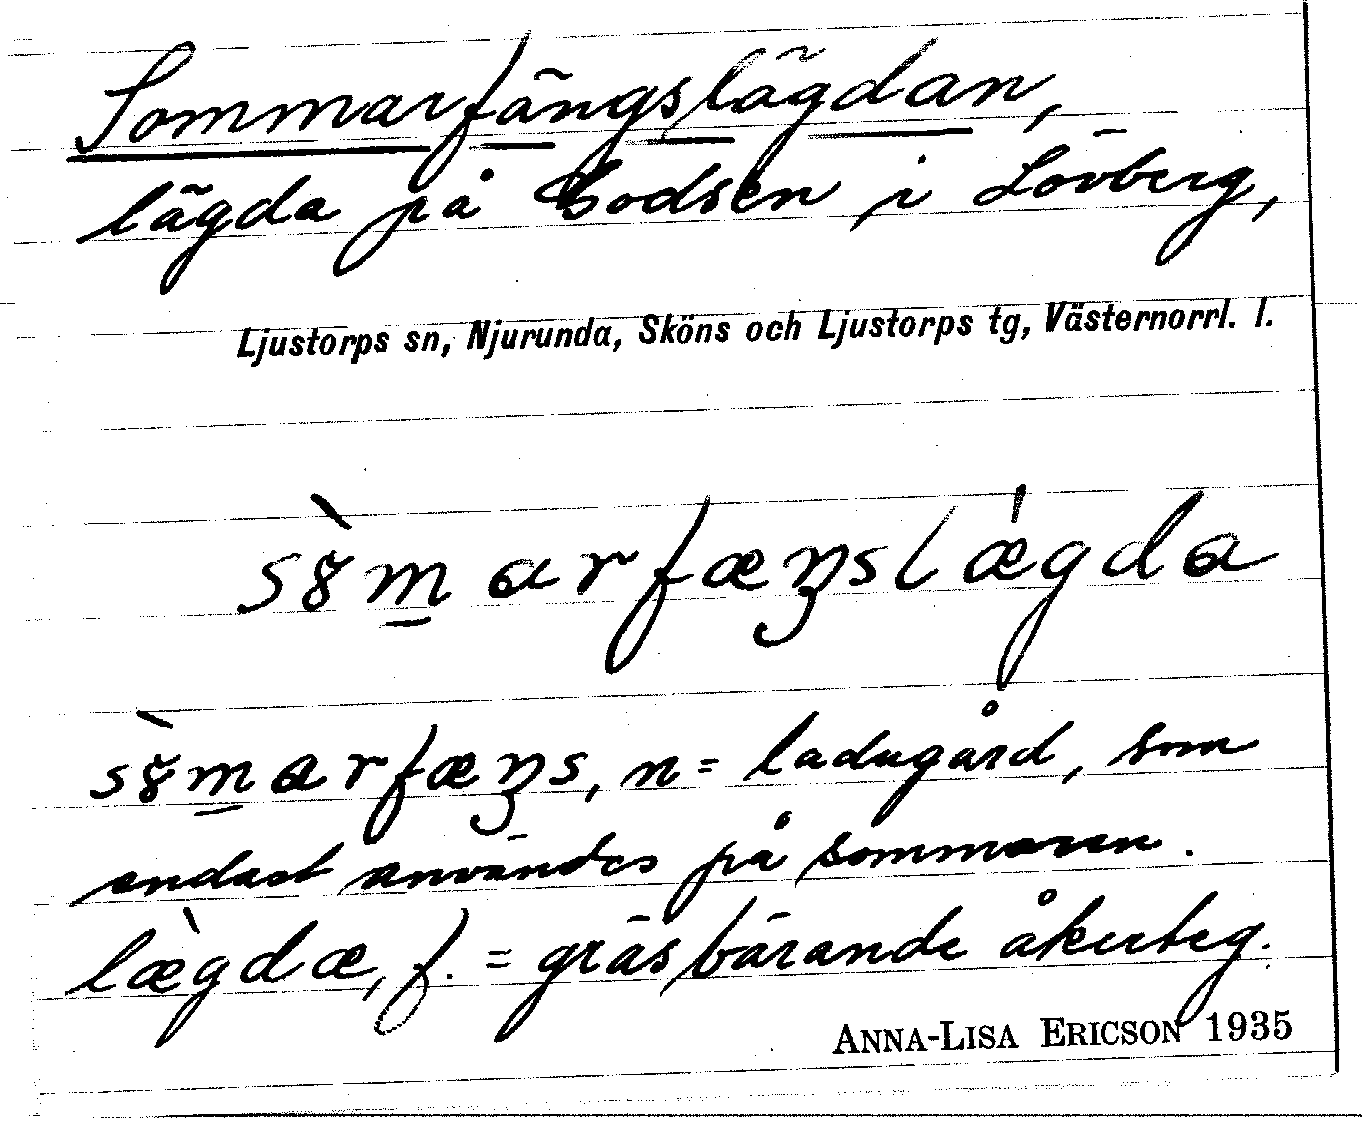 Sommarfängslägdan,
lägda på Bodsen i Lövberg,
Ljustorps sn, Njurunda, Sköns och Ljustorps tg, Västernorrl. l.
sò̈m̲arfæŋslǽgda
sò̈m̲arfæŋs, n = ladugård, som
endast användes på sommaren.
læ̀gdæ, f. = gräsbärande åkerteg.
ANNA-LISA ERICSON 1935